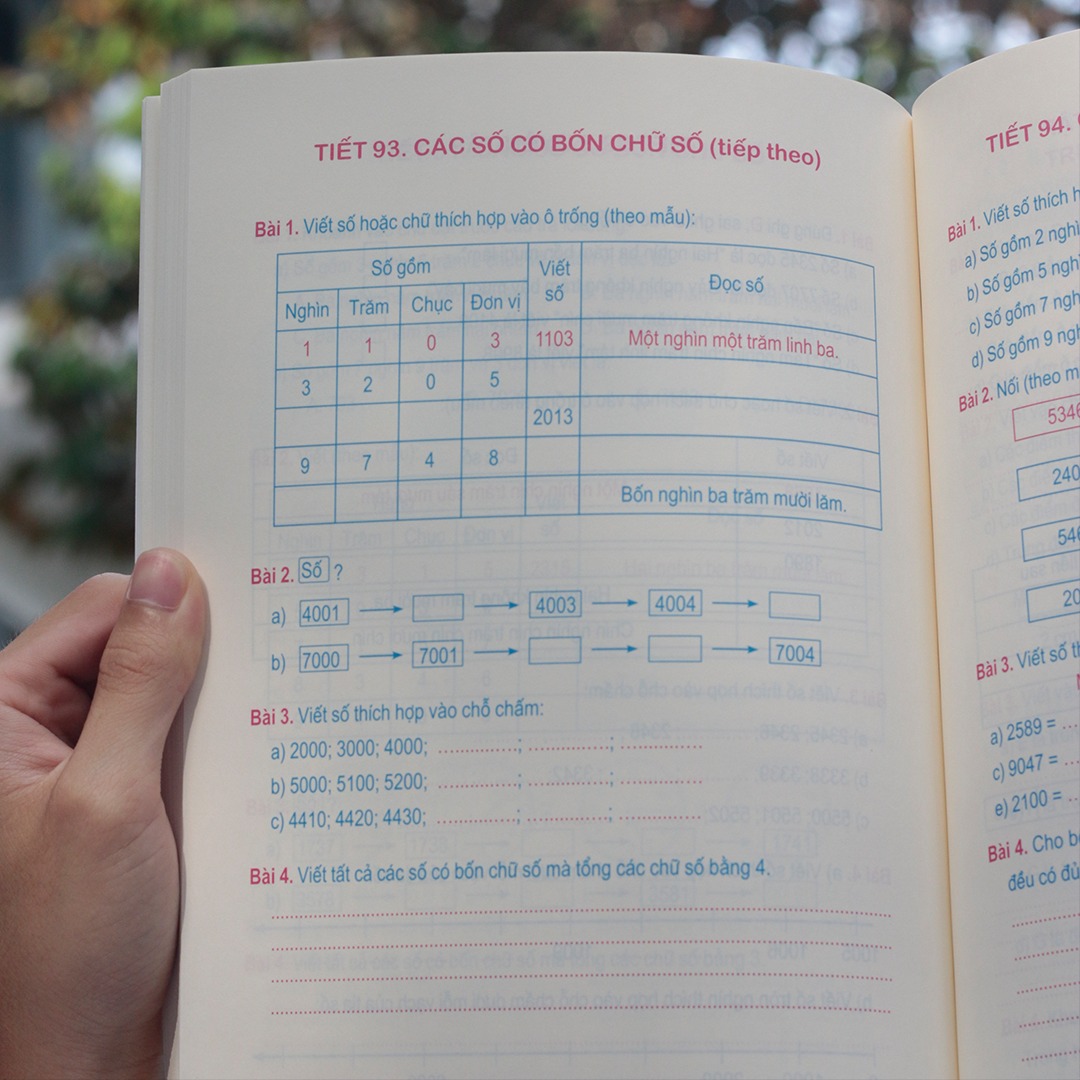 TIẾT 93. CÁC SỐ CÓ BỐN CHỮ SỐ (tiếp theo)
Bài 1. Viết số hoặc chữ thích hợp vào ô trống (theo mẫu):
Số gồm Viết số Đọc số
Nghìn Trăm Chục Đơn vị
1 1 0 3 1103 Một nghìn một trăm linh ba.
3 2 0 5
2013
9 7 4 8
Bốn nghìn ba trăm mười lăm.
Bài 2. Số ?
a) 4001 → → 4003 → 4004 →
b) 7000 → 7001 → → → 7004
Bài 3. Viết số thích hợp vào chỗ chấm:
a) 2000; 3000; 4000; ...............; ...............; ...............
b) 5000; 5100; 5200; ...............; ...............; ...............
c) 4410; 4420; 4430; ...............; ...............; ...............
Bài 4. Viết tất cả các số có bốn chữ số mà tổng các chữ số bằng 4.
TIẾT 94.
Bài 1. Viết số thích
a) Số gồm 2 nghì
b) Số gồm 5 ngh
c) Số gồm 7 ngh
d) Số gồm 9 ngh
Bài 2. Nối (theo m
534
240
54
20
Bài 3. Viết số t
a) 2589 = ...
c) 9047 = ...
e) 2100 = ...
Bài 4. Cho b
đều có đủ